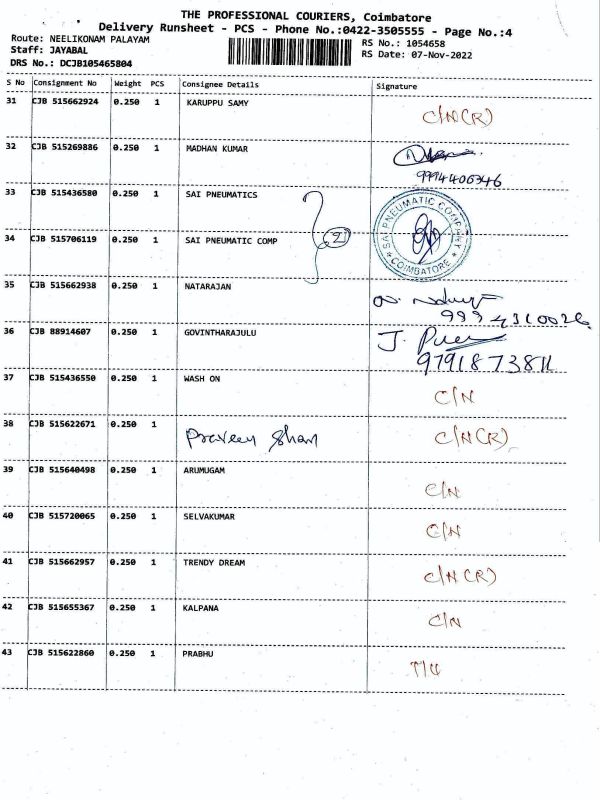 THE PROFESSIONAL COURIERS, Coimbatore
Delivery Runsheet - PCS - Phone No.:0422-3505555 - Page No.:4
Route: NEELIKONAM PALAYAM RS No.: 1054658
Staff: JAYABAL RS Date: 07-Nov-2022
DRS No.: DCJB105465804
S No Consignment No Weight PCS Consignee Details Signature
31 CJB 515662924 0.250 1 KARUPPU SAMY C/N(R)
32 CJB 515269886 0.250 1 MADHAN KUMAR
9994406346
33 CJB 515436580 0.250 1 SAI PNEUMATICS
SAI PNEUMATIC COMPANY
COIMBATORE
34 CJB 515706119 0.250 1 SAI PNEUMATIC COMP 2
35 CJB 515662938 0.250 1 NATARAJAN
9994310026
36 CJB 88914607 0.250 1 GOVINTHARAJULU J.
9791873811
37 CJB 515436550 0.250 1 WASH ON C/N
38 CJB 515622671 0.250 1 Praveen Sham C/N(R)
39 CJB 515640498 0.250 1 ARUMUGAM C/N
40 CJB 515720065 0.250 1 SELVAKUMAR C/N
41 CJB 515662957 0.250 1 TRENDY DREAM C/N(R)
42 CJB 515655367 0.250 1 KALPANA C/N
43 CJB 515622860 0.250 1 PRABHU